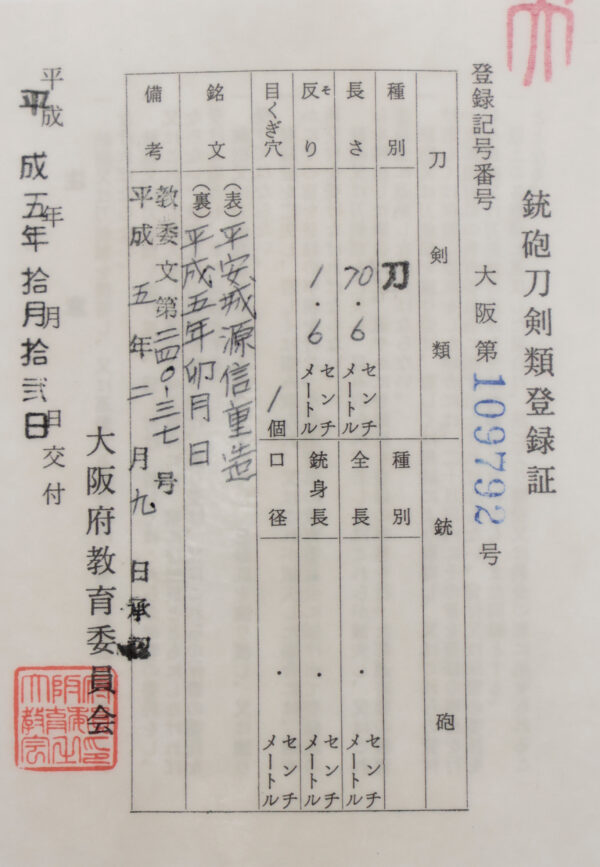 銃砲刀剣類登録証
登録記号番号 大阪第109792号
刀剣類
種別 刀
長さ 70.6センチメートル
反り 1.6センチメートル
そ
目くぎ穴 1個
銘文 (表)平安城源信重造
(裏)平成五年卯月日
備考 教委文第二四〇-三七号
平成五年二月九日承認
銃砲
種別
全長 ・ センチメートル
銃身長 ・ センチメートル
口径 ・ センチメートル
平成 年 月 日交付
平成五年拾月拾弐日
大阪府教育委員会